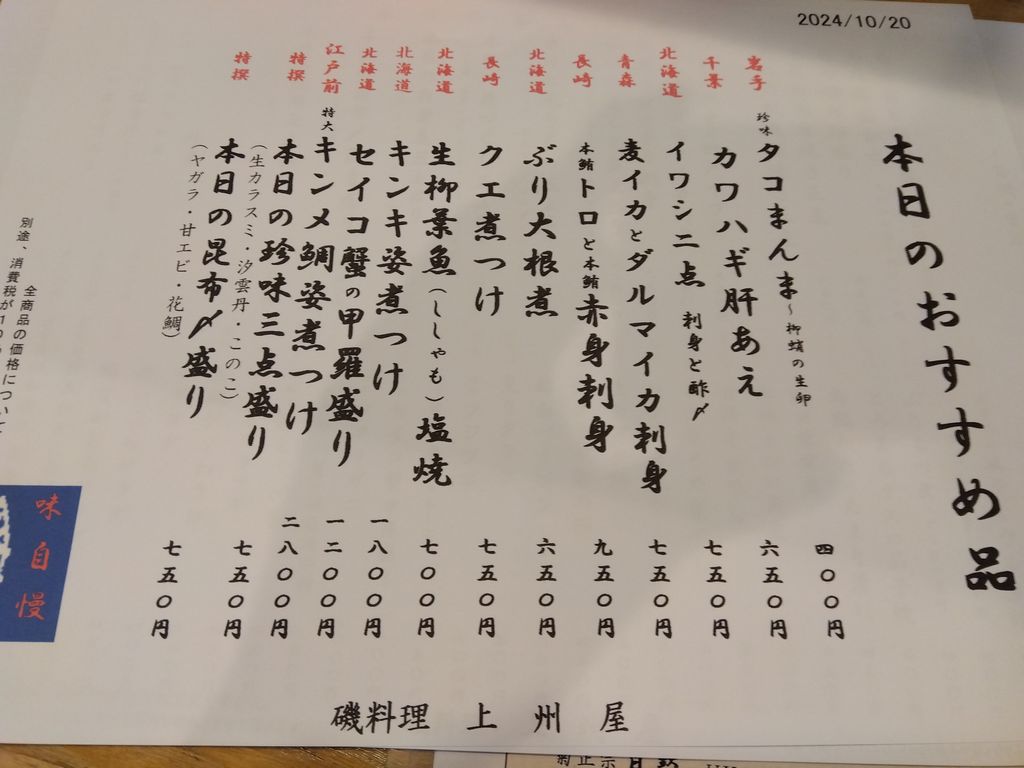 2024/10/20
本日のおすすめ品
岩手 珍味 タコまんま~柳蛸の生卵 四〇〇円
千葉 カワハギ肝あえ 六五〇円
北海道 イワシ二点 刺身と酢〆 七五〇円
青森 麦イカとダルマイカ刺身 七五〇円
長崎 本鮪トロと本鮪赤身刺身 九五〇円
北海道 ぶり大根煮 六五〇円
長崎 クエ煮つけ 七五〇円
北海道 生柳葉魚(ししゃも)塩焼 七〇〇円
北海道 キンキ姿煮つけ 一八〇〇円
北海道 セイコ蟹の甲羅盛り 一二〇〇円
江戸前 特大 キンメ鯛姿煮つけ 二八〇〇円
特撰 本日の珍味三点盛り 七五〇円
(生カラスミ・汐雲丹・このこ)
特撰 本日の昆布〆盛り 七五〇円
(ヤガラ・甘エビ・花鯛)
磯料理 上州屋
全商品の価格につい
別途、消費税が10
味自慢
菊正宗